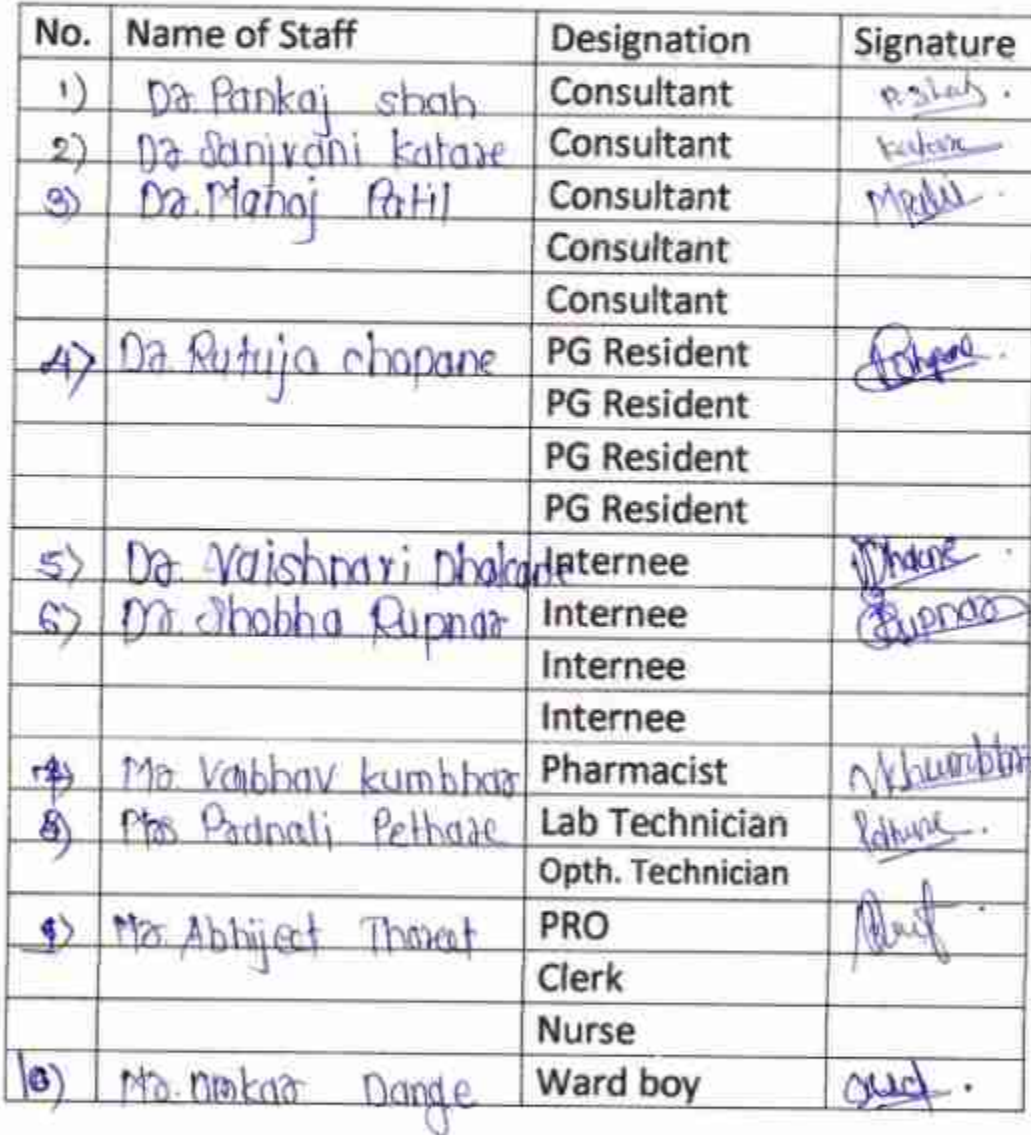 No. Name of Staff Designation Signature
1) Dr. Pankaj shah Consultant P. Shah.
2) Dr Sanjvani katare Consultant Katare
3) Dr. Manoj Patil Consultant MPatil.
Consultant
Consultant
4) Dr. Rutuja chopane PG Resident
PG Resident
PG Resident
PG Resident
5) Dr. Vaishnavi Dhakane Internee
6) Dr. Shobha Rupnar Internee Rupnar
Internee
Internee
7) Mr. Vaibhav kumbhar Pharmacist
8) Mrs Pethare Lab Technician
Opth. Technician
9) Mr. Abhijeet Thorat PRO
Clerk
Nurse
10) Mr. Omkar Dange Ward boy